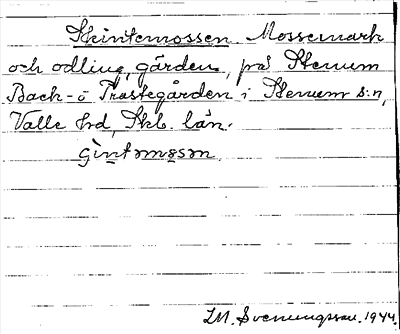 Skintemossen. Mossemark
och odling, gården, på Stenum
Back- o Prästegården i Stenum s:n,
Valle hd, Skb. län.
L.M. Svenungsson. 1944.